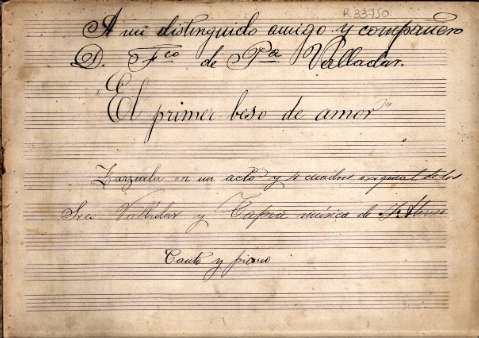 R.33750
A mi distinguido amigo y compañero
D. Fco de Pa Valladar.
"El primer beso de amor"
Zarzuela en un acto y cuadros original de los
Sres Valladar y Tapia música de
Canto y piano